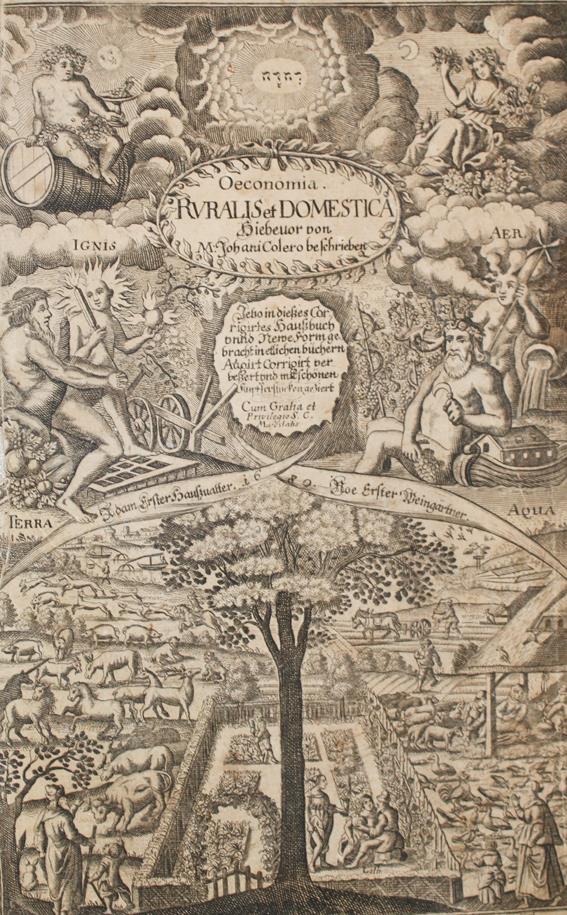 יהוה
Oeconomia.
RVRALIS et DOMESTICA
Hiebeuor von
M. Johani Colero beschrieben
IGNIS
AER.
Jetzo in dießes Cor
rigirtes Haußbuch
vnnd Newe Form ge
bracht in etlichen buchern
Corrigirt ver
beßert vnd mit schönen
geziert
Cum Gratia et
Privilegio S. C.
Adam Erster Haußuatter. 16
89. Noe Erster Weingärtner.
TERRA
AQUA